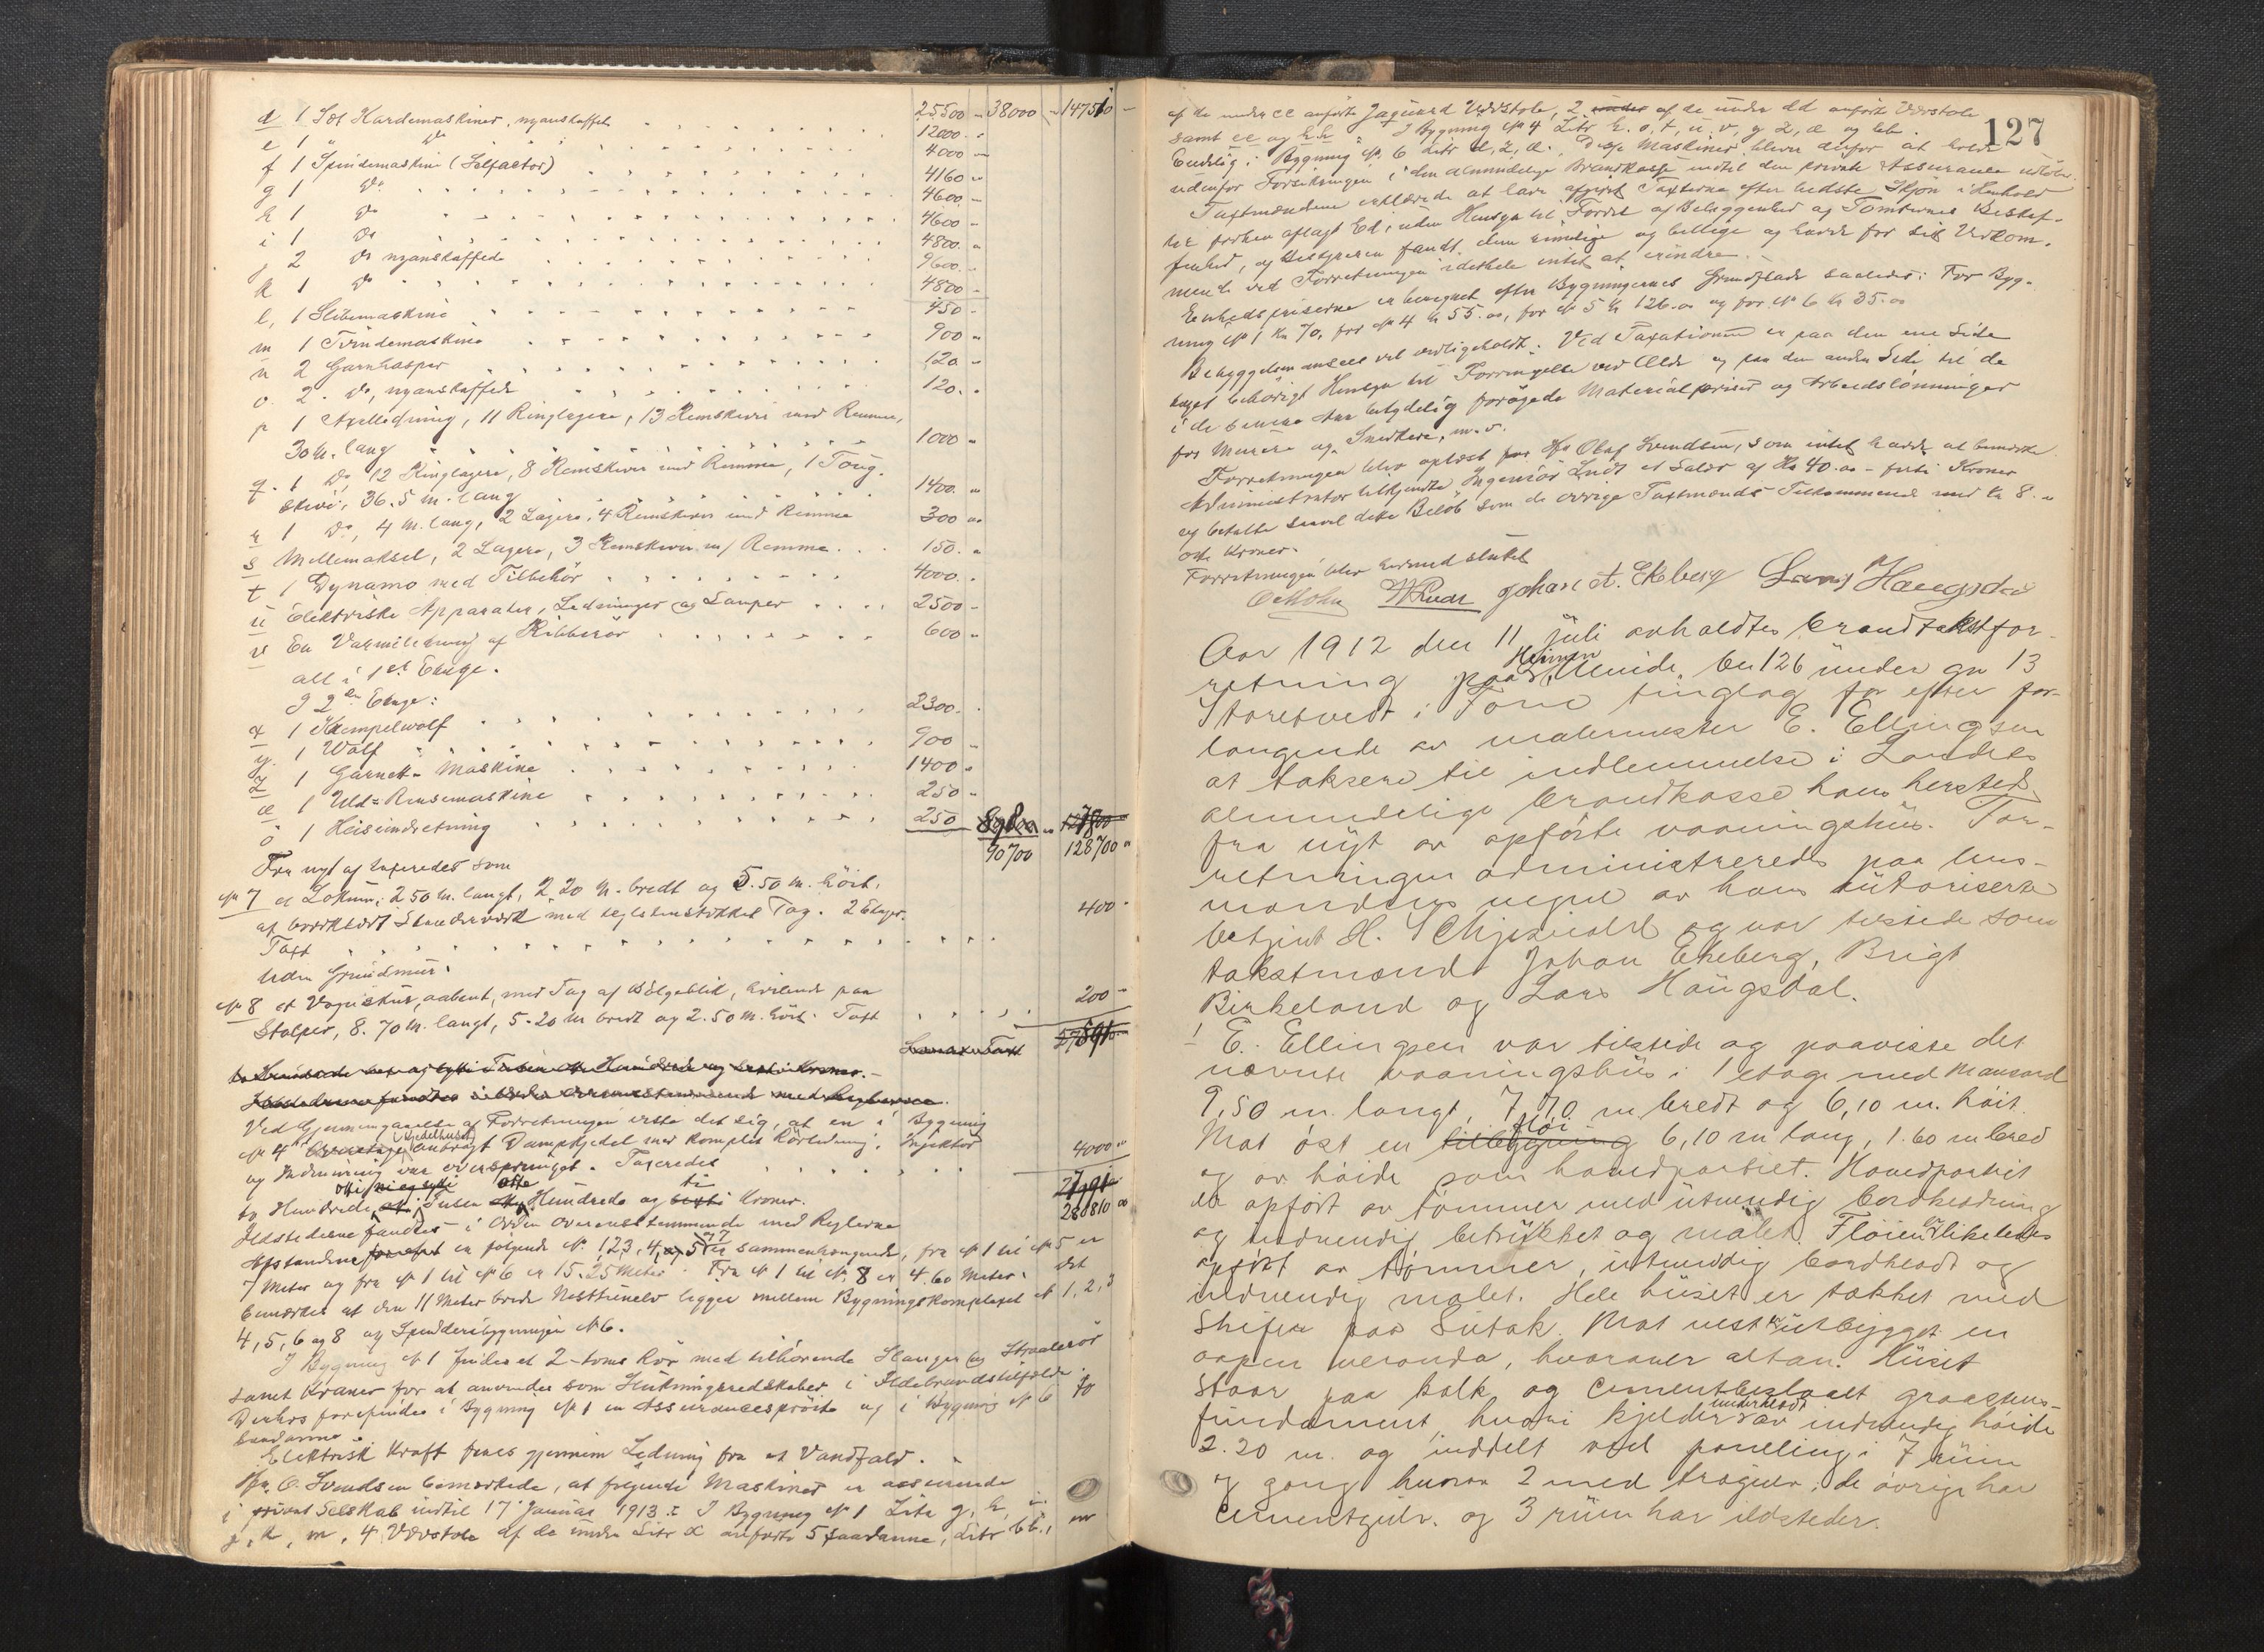 25500 " 38000 " 147510 -
d 1 Set Kardemaskiner, nyanskaffet
e 1 do 12000 "
f 1 Spindemaskine (Selfactor) 4000 "
g 1 do 4160 "
h 1 do 4600 "
i 1 do 4600 "
j 2 do nyanskaffede 4800 "
k 1 do 9600 "
4800 "
l, 1 Slibemaskine 450 "
m 1 Tvindemaskine 900 "
n 2 Garnhasper 120 "
o. 2. do, nyanskaffede 120 "
p 1 Axelledning, 11 Ringlagere, 13 Remskiver med Remme,
30 m. lang 1000 "
q. 1 do, 12 Ringlagere, 8 Remskiver med Remme, 1 Toug-
skive, 36.5 m. lang 1400 "
r 1 do, 4 m. lang, 2 Lagere, 4 Remskiver med Remme 300 "
s Mellemaksel, 2 Lagere, 3 Remskiver m/ Remme 150 "
t 1 Dynamo med Tilbehör 4000 "
u Elektriske Apparater, Ledninger og Lamper 2500 "
v En Varmeledning af Ribberör 600 "
alt i 1st Etage.
I 2den Etage:
x 1 Krempelwolf 2300 "
y. 1 Wolf 900 "
z 1 Garnett-Maskine 1400 "
æ 1 Uld-Rensemaskine 250 "
ö 1 Heiseindretning 250
90700 128700 "
Fra nyt af taxeredes som
No 7 et Lokum, 2.50 m. langt, 2.20 m. bredt og 5.50 m. höit,
af bordklædt Standerværk med teglstenstækket Tag. 2 Etager.
Taxt 400 "
Uden Grundmur.
No 8 et Vognskur, aabent, med Tag af Bölgeblik, hvilende paa
Stolper, 8.70 m. langt, 5.20 m bredt og 2.50 m. höit. Taxt 200 "
Ved Gjennemgaaelse af Forretningen viste det sig, at en i Bygning
No 4s Kjedelhuset anbragt Dampkjedel med komplet Rörledning, Injektor
og Indmuring var oversprunget. Taxeredes 4000 "
to Hundrede otti Tusen otte Hundrede og ti Kroner. 280810 "
Ildstederne fandtes i Orden overensstemmende med Reglerne
Afstandene er fölgende No. 1, 2, 3, 4, 5 og 7 er sammenhængende, fra No 1 til No 5 er
7 Meter og fra No 1 til No 6 er 15.25 Meter. Fra No 1 til No. 8 er 4.60 Meter. Det
bemærkes at den 11 Meter brede Nesttunelv ligger mellem Bygningskomplexet No 1, 2, 3
4, 5, 6 og 8 og Spinderibygningen No 6.
I Bygning No 1 findes et 2-toms Rör med tilhörende Slanger og Straalerör
samt Kraner for at anvendes som Slukningsredskaber i Ildebrandstilfælde.
Derhos forefindes i Bygning No 1 en Assurancespröite og i Bygning No 6 to
saadanne.
Elektrisk Kraft faaes gjennem Ledning fra et Vandfald.
Hr. O. Svendsen bemærkede, at fölgende Maskiner er assurerede
i privat Selskab indtil 17 Januar 1913: I Bygning No 1 Litr g, h, i
j, k, m, 4 Vævstole af de under Litr x anförte 5 saadanne, Litr bb,
af de under cc anförte Jaquard Vævstole, 2 af de under dd anförte Vævstole
127
samt ee og I Bygning No 4 Litr og
Endelig i Bygning No. 6 Litr d, z, æ. Disse Maskiner blever derfor at holde
udenfor Forsikringen i den almindelige Brandkasse indtil den private Assurance udlöber.
Taxtmændene erklærede at have afgivet Taxterne efter bedste Skjön i Henhold
til forhen aflagt Ed, uden Hensyn til Fordel af Beliggenhed og Tomternes Beskaf-
fenhed, og Bestyreren fandt dem rimelige og billige og havde for sit Vedkom-
mende ved Forretningen idethele intet at erindre.
Enhedspriserne er beregnet efter Bygningernes Grundflade saaledes: For Byg-
ning No 1 Kr 70, for No 4 Kr 55.00, for No 5 Kr 126.00 og for No 6 Kr 35.00
Bebyggelsen ansees vel vedligeholdt. Ved Taxationen er paa den ene Side
taget behörigt Hensyn til Forringelse ved Ælde og paa den anden Side til de
i de senere Aar betydelig forögede Materialpriser og Arbeidslönninger
for Murere og Snedkere, m. v.
Forretningen blev oplæst for Hr Olaf Svendsen, som intet havde at bemærke.
Administrator tilkjendte Ingeniör Lndt et Salær af Kr 40.00 - forti Kroner
og betalte saavel dette Belöb som de övrige Taxtmænds Tilkommende med Kr 8.00
otte Kroner.
Forretningen blev hermed sluttet
O. Mohn Johan A. Ekeberg Lars Haugsdal
Aar 1912 den 11 juli avholdtes brandtakstfor-
retning paa Heimen Minde, bn 126 under gn 13
Storetvedt i Fane tinglag for efter for-
langende av malermester E. Ellingsen
at taksere til indlemmelse i Landets
almindelige brandkasse hans hersted
fra nyt av opförte vaaningshus. For-
retningen administreredes paa lens-
mandens vegne av hans autoriserte
betjent H. Schjelderup og var tilstede som
takstmænd Johan Ekeberg, Brigt
Birkeland og Lars Haugsdal.
1 E. Ellingsen var tilstede og paaviste det
nævnte vaaningshus i 1 etage med Mansard
9,50 m. langt, 7,70 m bredt og 6,10 m. höit.
Mot öst en flöi 6,10 m lang, 1.60 m bred
og av höide som hovedpartiet. Hovedpartiet
er opfört av tömmer med utvendig bordklædning
og indvendig betrukket og malet. Flöien er likeledes
opfört av tömmer, utvendig bordklædt og
indvendig malet. Hele huset er tækket med
Skifer paa Sutak. Mot vest er utbygget en
aapen veranda, hvorover altan. Huset
staar paa kalk og cementbeslaaet graastens-
fundament, hvori kjelder underklædt av indvendig höide
2.20 m. og inddelt ved paneling i 7 rum
og gang hvorav 2 med trægulv, de övrige har
cementgulv. og 3 rum har ildsteder.